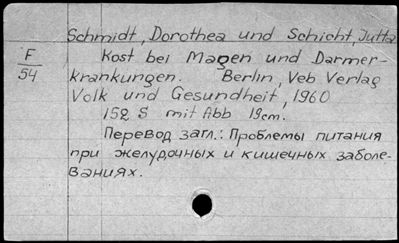 Schmidt, Dorothea und Schicht, Jutta
F
54
Kost bei Magen und Darmer-
krankungen. Berlin, Veb Verlag
Volk und Gesundheit, 1960
152 S mit Abb 19cm.
Перевод загл.: Проблемы питания
при желудочных и кишечных заболе-
ваниях.